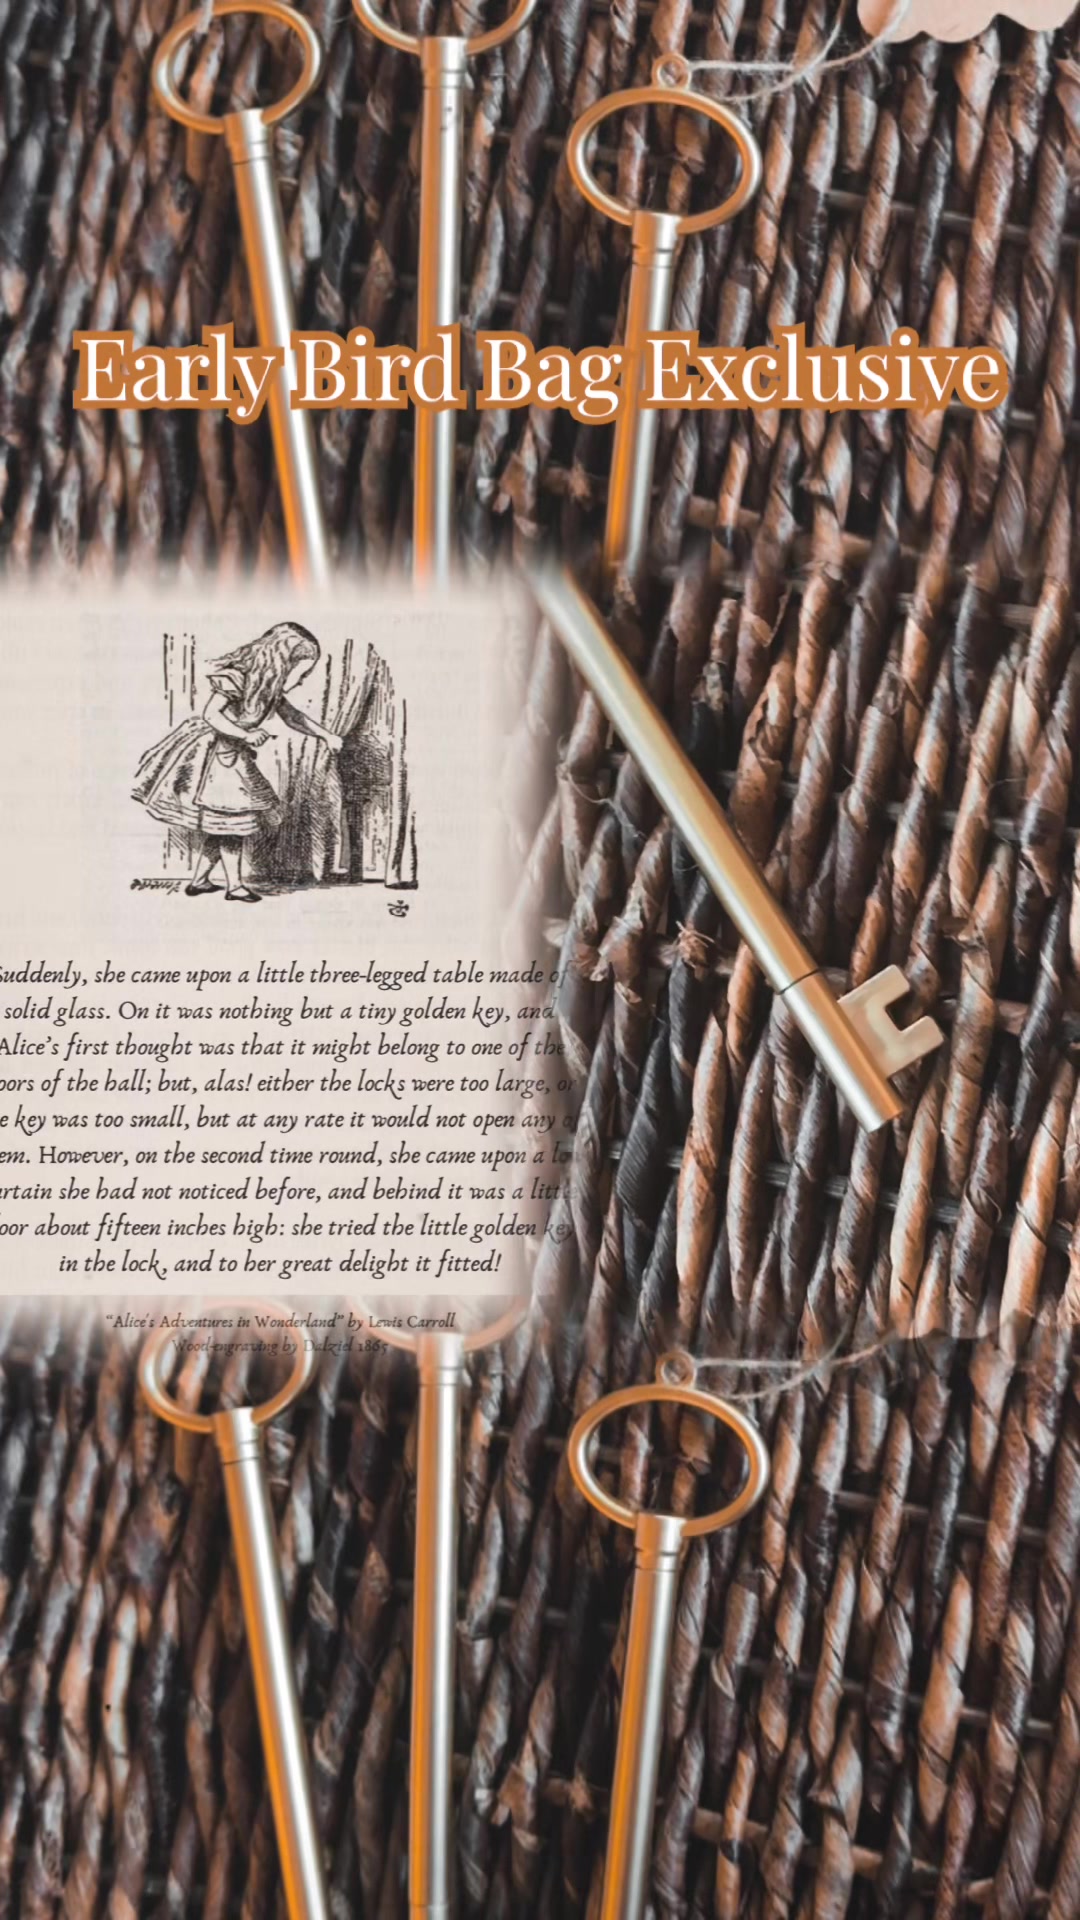 Early Bird Bag Exclusive
Suddenly, she came upon a little three-legged table made of
solid glass. On it was nothing but a tiny golden key, and
Alice's first thought was that it might belong to one of the
oors of the hall; but, alas! either the locks were too large, or
e key was too small, but at any rate it would not open any
em. However, on the second time round, she came upon a
rtain she had not noticed before, and behind it was a little
oor about fifteen inches high: she tried the little golden key
in the lock, and to her great delight it fitted!
"Alice's Adventures in Wonderland" by Lewis Carroll
Wood-engraving by Dalziel 1865